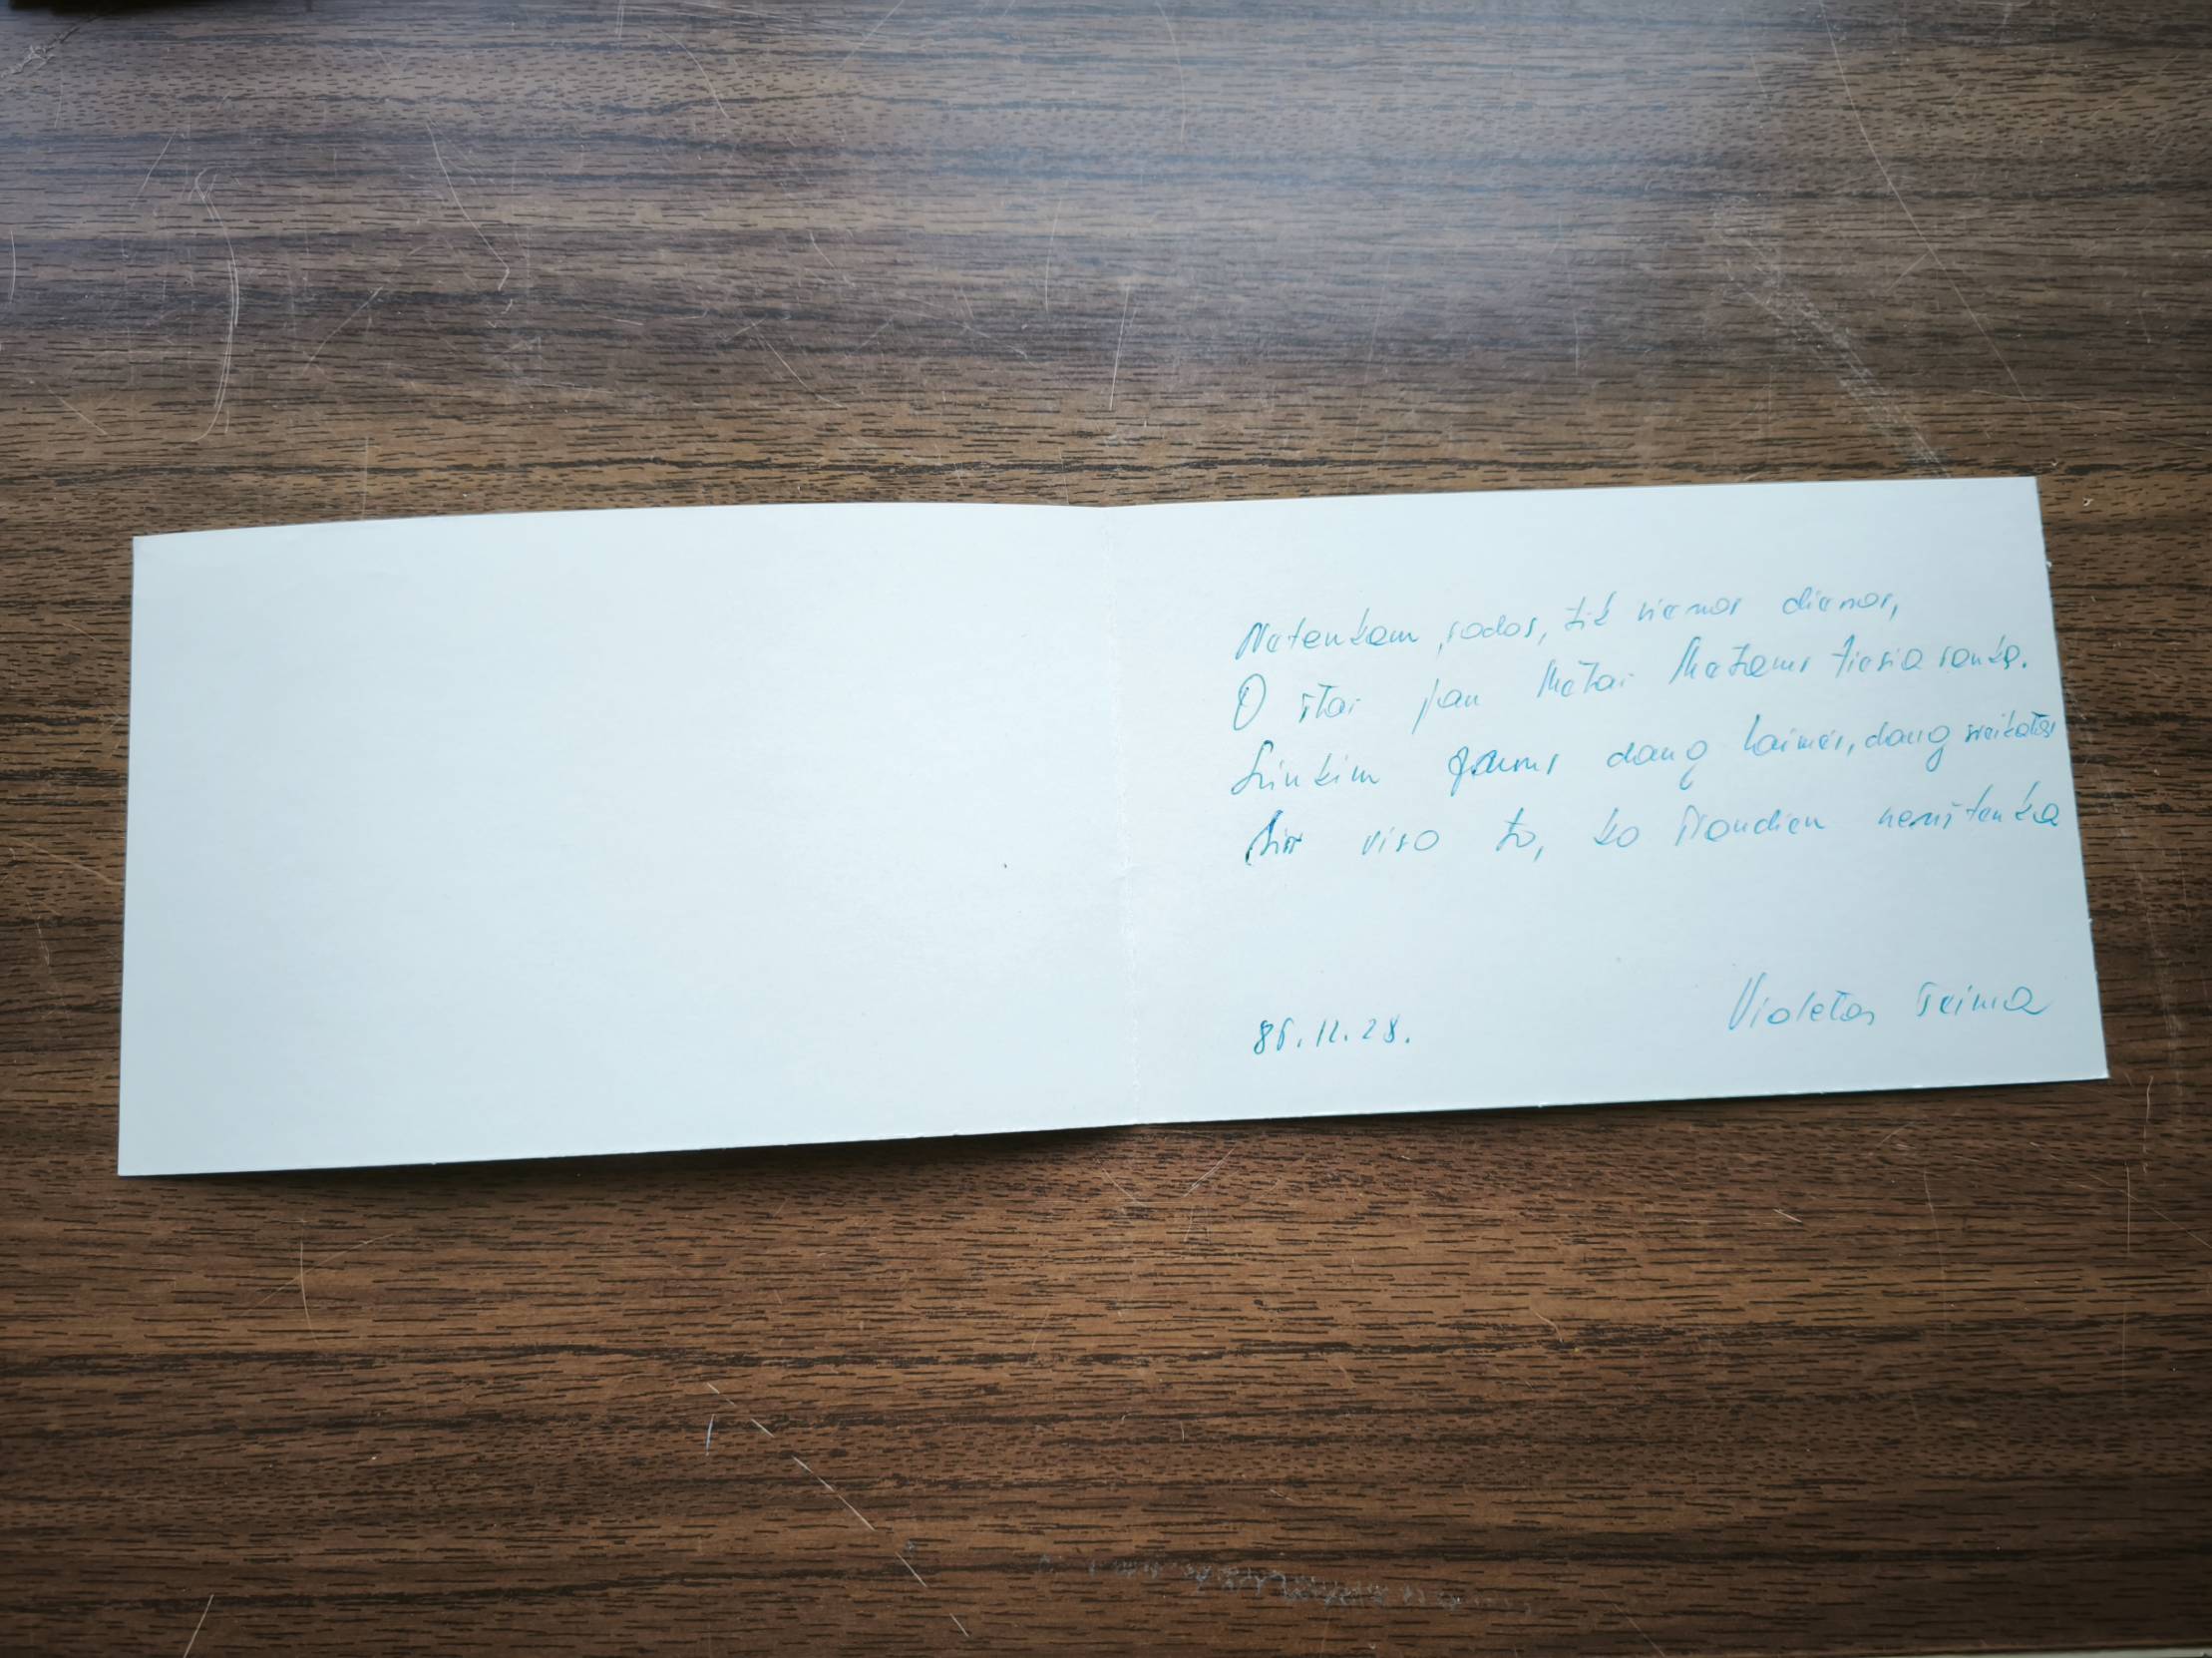 Netenkam, rodos, tik vienos dienos,
O štai jau Metai Metams tiesia ranką.
Linkim Jums daug laimės, daug sveikatos
Bir viso to, ko šiandien neužtenka
86.12.28.
Violetos šeima